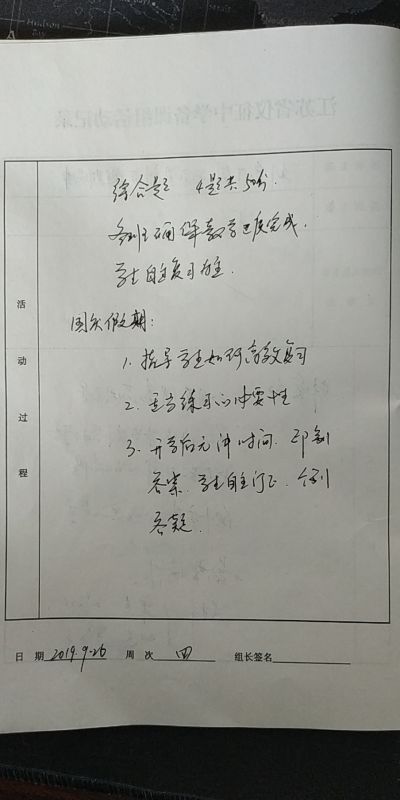 综合题 4题共50分.
各班确保教学进度完成.
学生自主复习为主.
国庆假期:
1. 指导学生如何高效复习
2. 适当练习的重要性
3. 开学后无讲评时间. 印制
答案. 学生自主订正. 个别
答疑.
活动过程
日 期 2019.9.26 周 次 四 组长签名